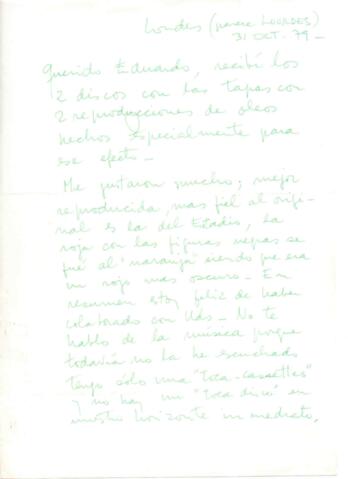 Londes (parece LOURDES)
31 OCT. 79 -
Querido Eduardo, recibí los
2 discos con las tapas con
2 reproducciones de oleos
hechos especialmente para
ese efecto -
Me gustaron mucho; mejor
reproducida, mas fiel al origi-
nal es la del Estadio, la
roja con las figuras negras se
fué al "naranja" siendo que era
un rojo mas oscuro - En
resumen estoy feliz de haber
colaborado con Uds - No te
hablo de la música porque
todavía no la he escuchado
tengo sólo una "toca-cassettes"
y no hay un "toca disco" en
nuestro horizonte inmediato,